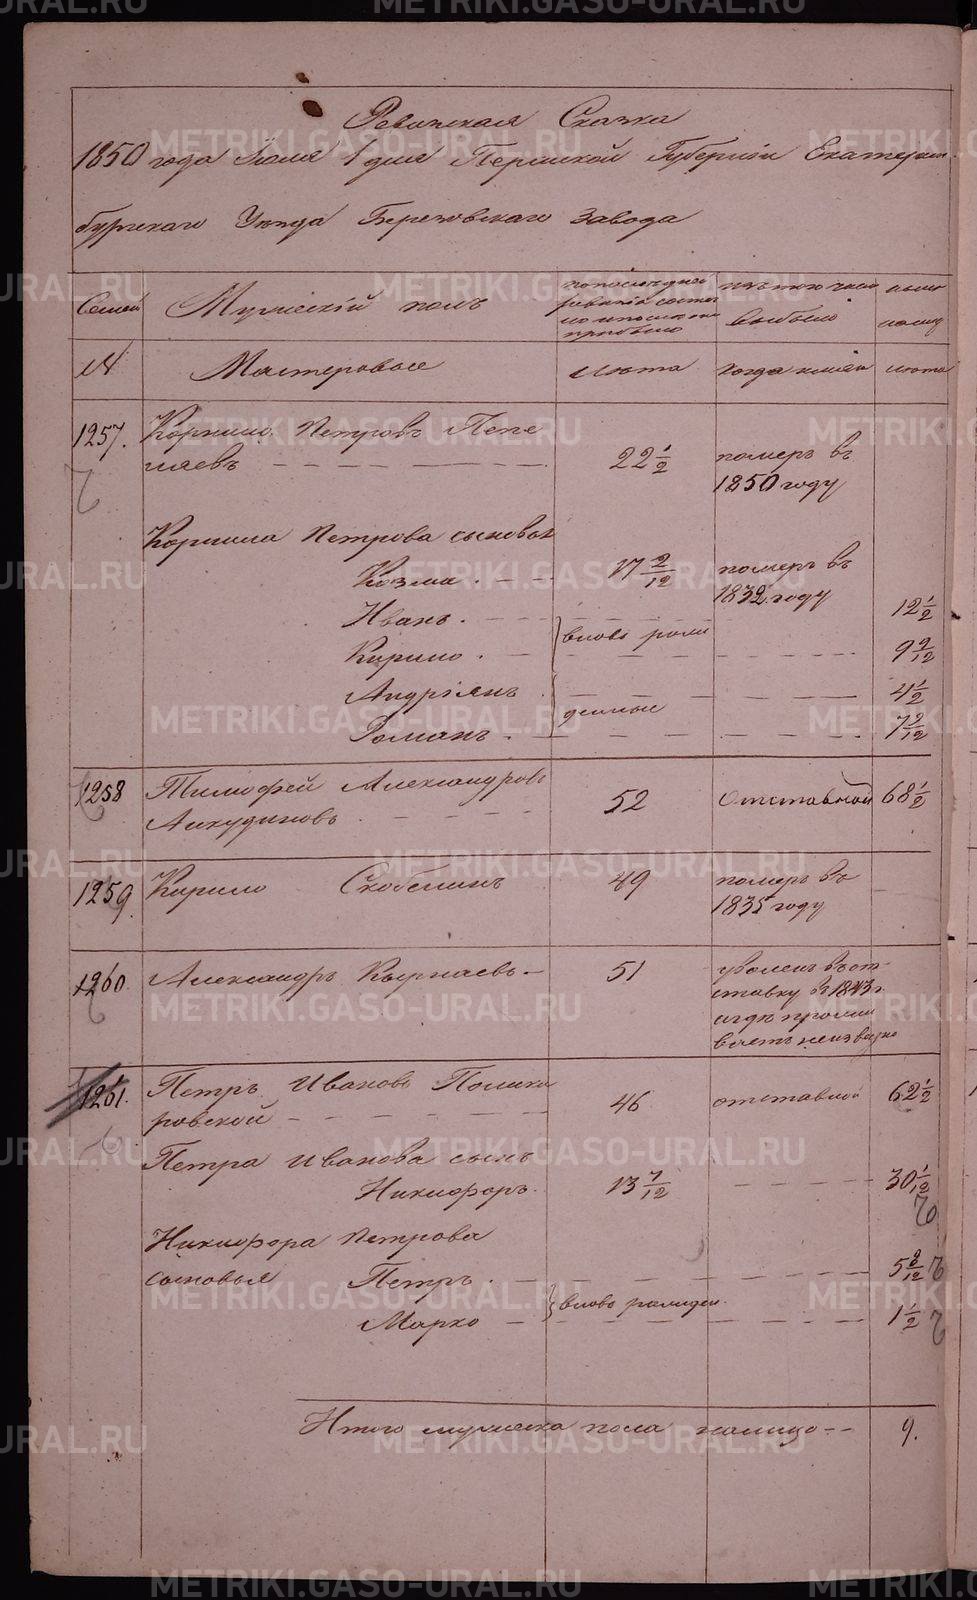 Ревижская Сказка
1850 года Июля 1 дня Пермской Губернiи Екатерин
бургскаго Уѣзда Березовскаго Завода
Семей Мужескiй полъ по последней ревизiи состояло и после того прибыло изъ того числа выбыло ныне на лицо
№ Мастеровые лѣта когда имян лѣта
1257. Корнило Петровъ Пепе
ляевъ 22 1/2 померъ въ
1850 году
Корнила Петрова сыновья
Козма 17 2/12 померъ въ
1832 году
Иванъ 12 1/2
вновь рож
Кирило 9 9/12
Андрiянъ 4 1/2
денные
Романъ 7 2/12
1258 Тимофей Александровъ
Анкудиновъ 52 отставной 68 1/2
1259 Кирило Скобелинъ 49 померъ въ
1835 году
1260 Александръ Кырнаевъ 51 уволенъ въ от
ставку въ 1843 г.
и гдѣ прожи
ваетъ неизвѣсно
1261. Петръ Ивановъ Полика
ровской 46 отставной 62 1/2
Петра Иванова сынъ
Никифоръ 13 7/12 30 1/12
Никифора Петрова
сыновья Петръ 5 2/12
вновь рожден.
Марко 1 1/2
Итого мужеска пола налицо 9.
METRIKI.GASO-URAL.RU